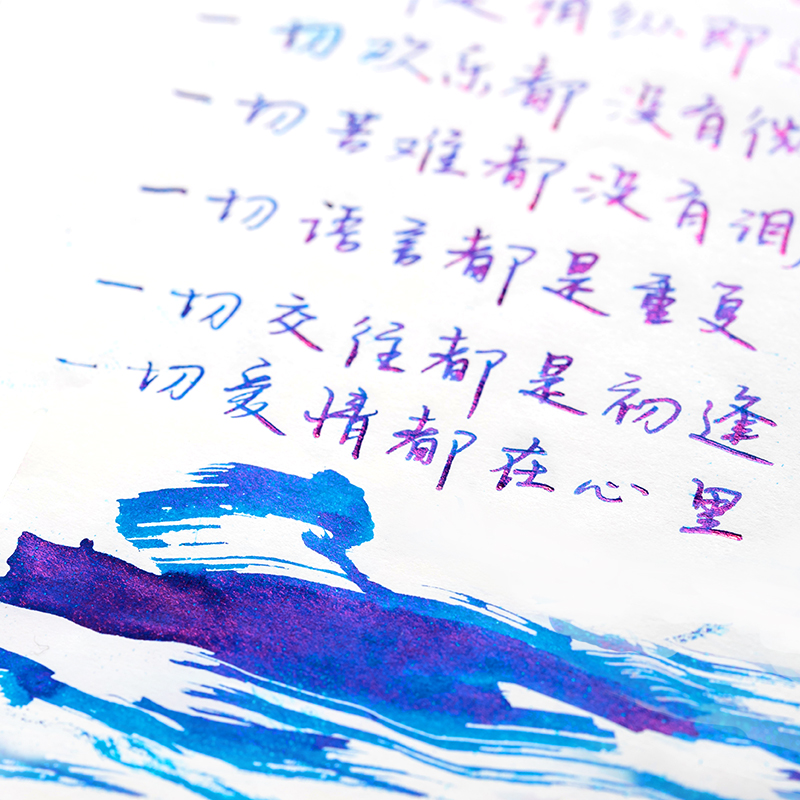 是稍纵即逝
一切欢乐都没有微
一切苦难都没有泪
一切语言都是重复
一切交往都是初逢
一切爱情都在心里